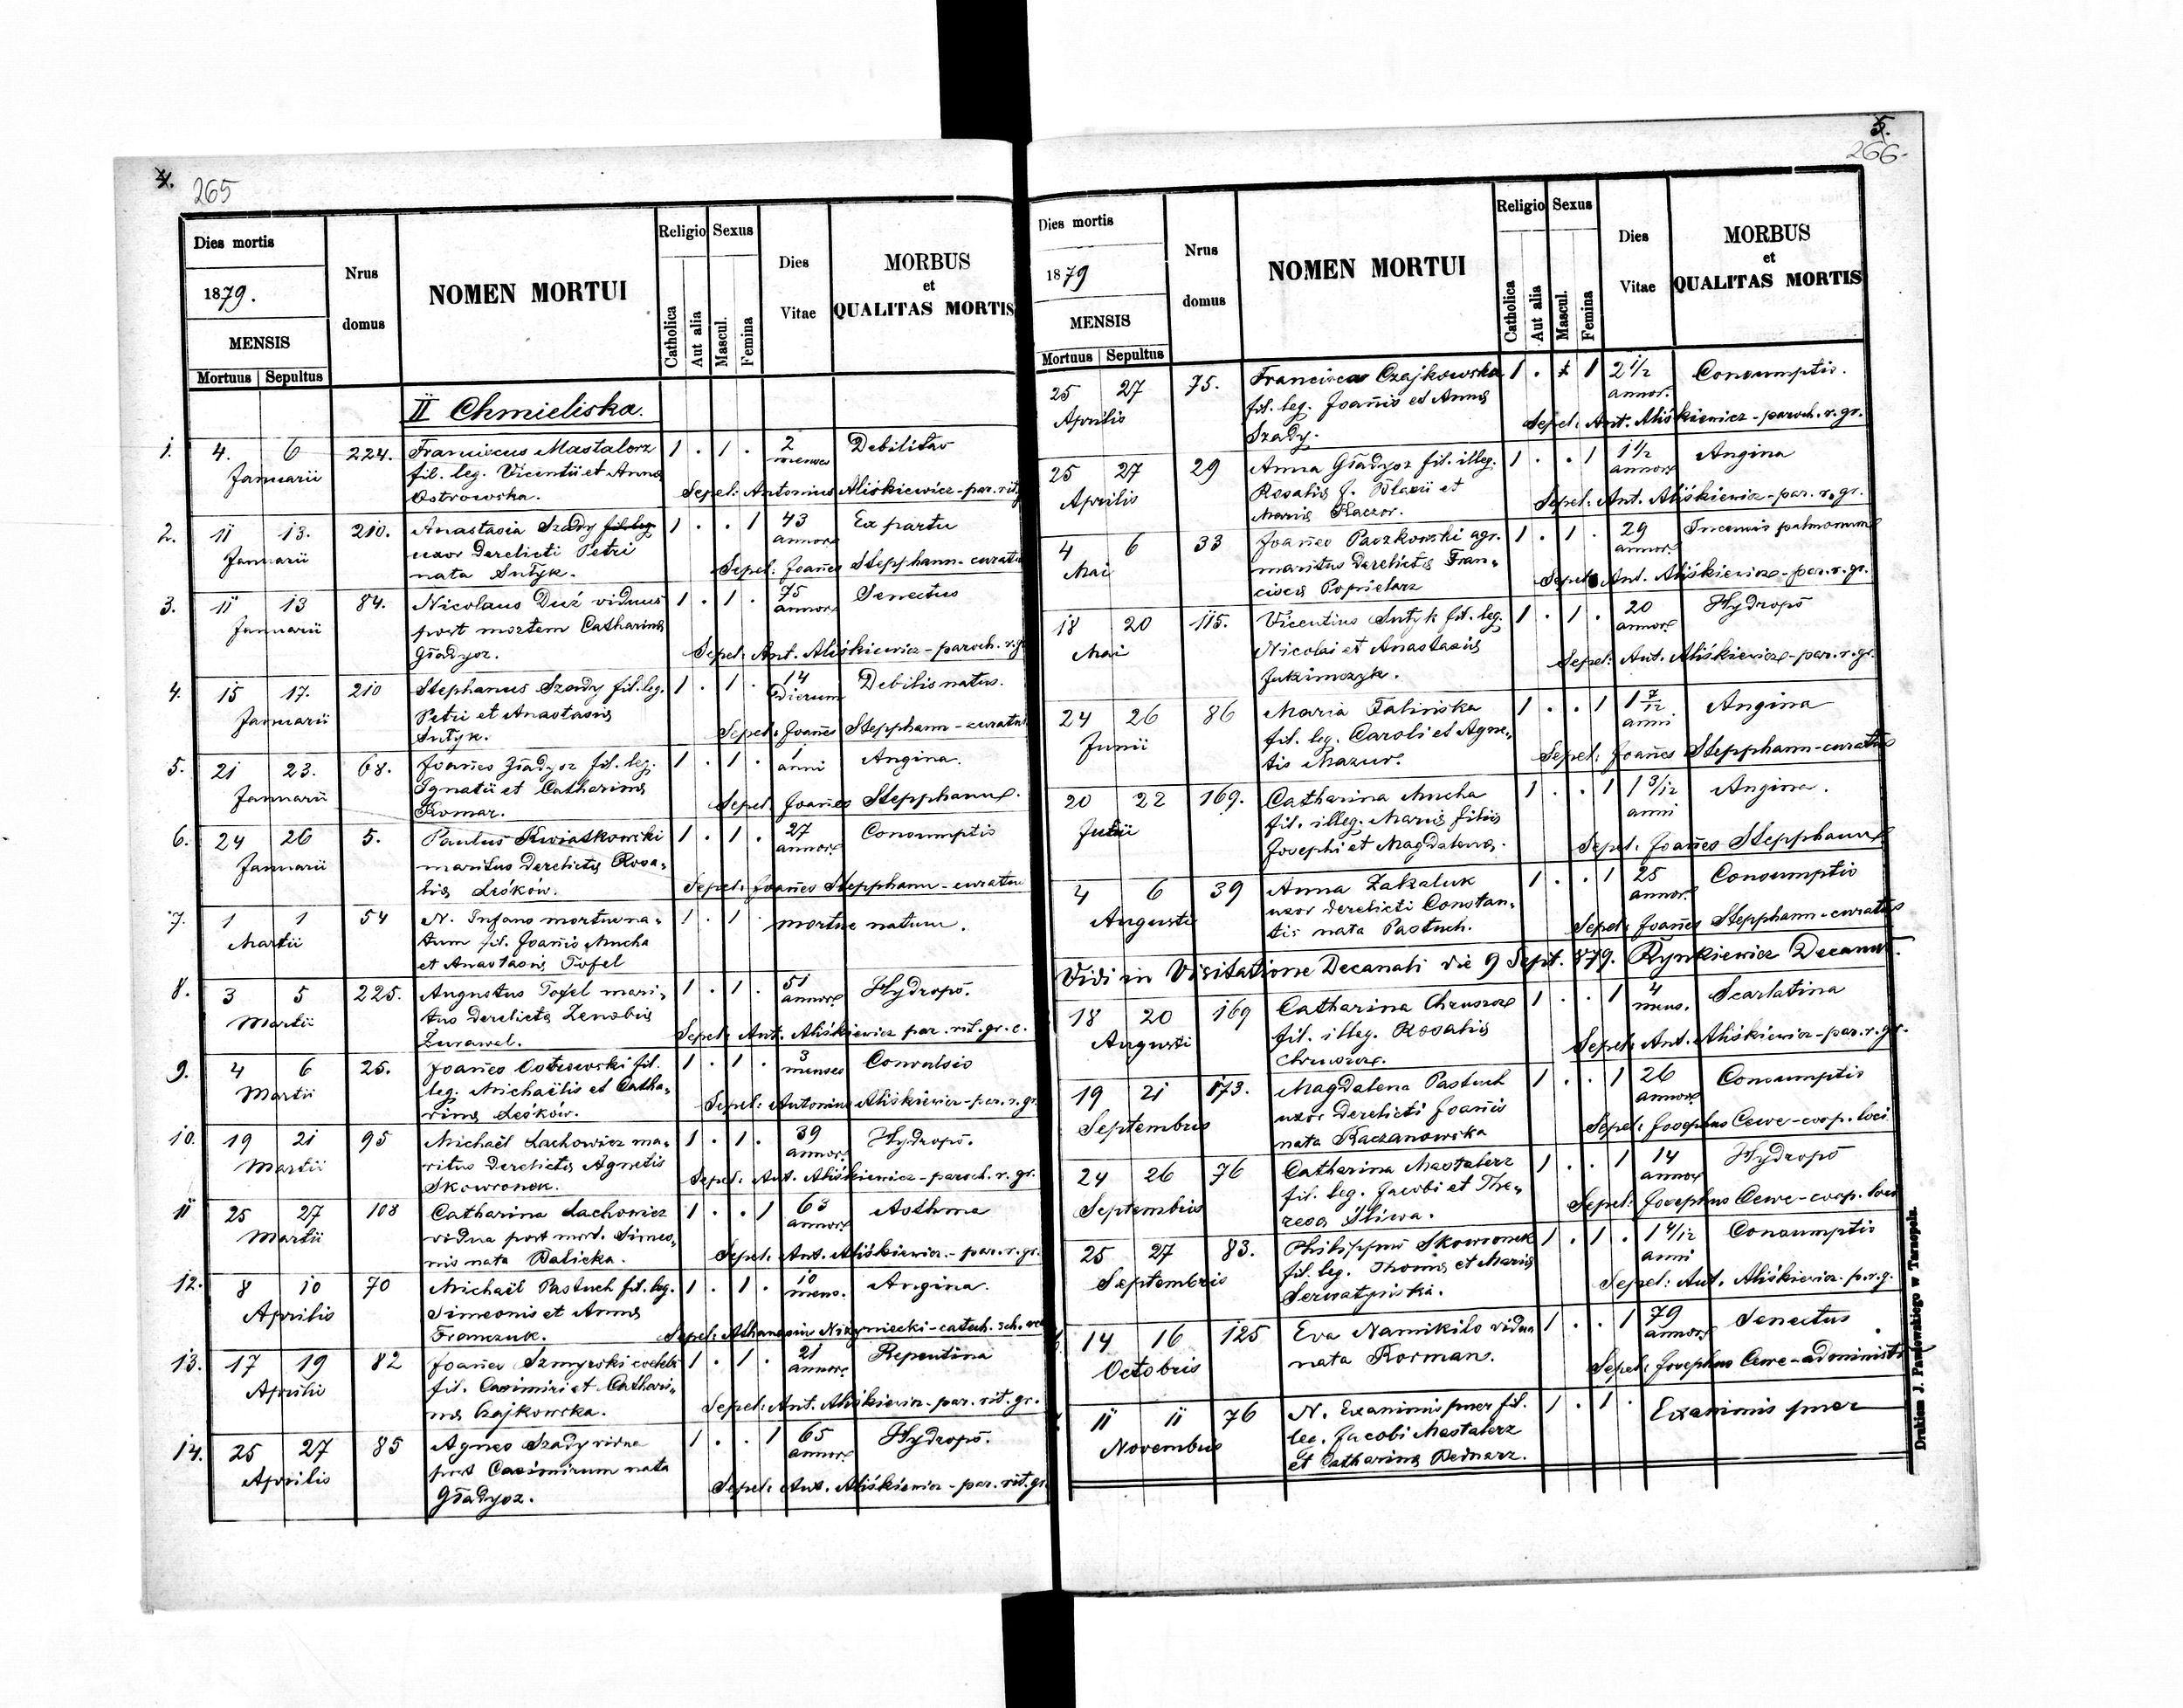 4.
265
Dies mortis
1879.
MENSIS
Mortuus Sepultus
Nrus domus
NOMEN MORTUI
Religio
Catholica
Aut alia
Sexus
Mascul.
Femina
Dies Vitae
MORBUS
et
QUALITAS MORTIS
II Chmieliska.
1. 4. 6 224. Franciscus Mastalerz 1 . 1 . 2 Debilitas
Januarii fil. leg. Vicentii et Annæ menses
Ostrowska. Sepel: Antonius Aliśkiewicz - par. rit.
2. 11 13. 210. Anastasia Szady fil. leg 1 . . 1 43 Ex partu
Januarii uxor derelicti Petri annor.
nata Sutyk. Sepel: Joañes Stepphann - curatus
3. 11 13 84. Nicolaus Duź viduus 1 . 1 . 75 Senectus
Januarii post mortem Catharinæ annor.
Gładysz. Sepel: Ant. Aliśkiewicz - paroch. r. gr.
4. 15 17. 210 Stephanus Szady fil. leg. 1 . 1 . 14 Debilis natus.
Januarii Petri et Anastasiæ dierum
Sutyk. Sepel: Joañes Stepphann - curatus
5. 21 23. 68. Joañes Gładysz fil. leg. 1 . 1 . 1 Angina.
Januarii Ignatii et Catharinæ anni
Komar. Sepel: Joañes Stepphann.
6. 24 26 5. Paulus Kwiatkowski 1 . 1 . 27 Consumptio
Januarii maritus derelictæ Rosa- annor.
liæ Leśków. Sepel: Joañes Stepphann - curatus
7. 1 1 54 N. Infans mortuo na- 1 . 1 . mortue natum.
Martii tum fil. Joañis Mucha
et Anastasiæ Tofel
8. 3 5 225. Augustus Tofel mari- 1 . 1 . 51 Hydrops.
Martii tus derelictæ Zenobiæ annor.
Żurawel. Sepel: Ant. Aliśkiewicz par. rit. gr. c.
9. 4 6 25. Joañes Ostrowski fil. 1 . 1 . 3 Convulsio
Martii leg. Michaëlis et Catha- menses
rinæ Leśków. Sepel: Antonius Aliśkiewicz - par. r. gr.
10. 19 21 95 Michaël Lachowicz ma- 1 . 1 . 39 Hydrops.
Martii ritus derelictæ Agnetis annor.
Skowronek. Sepel: Ant. Aliśkiewicz - paroch. r. gr.
11 25 27 108 Catharina Lachowicz 1 . . 1 63 Asthma
Martii vidua post mort. Simeo- annor.
nis nata Balicka. Sepel: Ant. Aliśkiewicz - par. r. gr.
12. 8 10 70 Michaël Pastuch fil. leg. 1 . 1 . 10 Angina.
Aprilis Simeonis et Annæ mens.
Franczuk. Sepel: Athanasius - catech. sch.
13. 17 19 82 Joañes Szmyrski coelebs 1 . 1 . 21 Repentina
Aprilis fil. Casimiri et Cathari- annor.
næ Czajkowska. Sepel: Ant. Aliśkiewicz - par. rit. gr.
14. 25 27 85 Agnes Szady vidua 1 . . 1 65 Hydrops.
Aprilis post Casimirum nata annor.
Gładysz. Sepel: Ant. Aliśkiewicz - par. rit. gr.
5.
266.
Dies mortis
1879
MENSIS
Mortuus Sepultus
Nrus domus
NOMEN MORTUI
Religio
Catholica
Aut alia
Sexus
Mascul.
Femina
Dies Vitae
MORBUS
et
QUALITAS MORTIS
25 27 75. Francisca Czajkowska 1 . 1 2 1/2 Consumptio.
Aprilis fil. leg. Joañis et Annæ annor.
Szady. Sepel: Ant. Aliśkiewicz - paroch. r. gr.
25 27 29 Anna Gładysz fil. illeg. 1 . . 1 1 1/2 Angina
Aprilis Rosaliæ f. Blasii et annor.
Mariæ Kaczor. Sepel: Ant. Aliśkiewicz - par. r. gr.
4 6 33 Joañes Paszkowski agr. 1 . 1 . 29 pulmonum
Mai maritus derelictæ Fran- annor.
ciscæ Popielarz Sepel: Ant. Aliśkiewicz - par. r. gr.
18 20 115. Vicentius Sutyk fil. leg. 1 . 1 . 20 Hydrops
Mai Nicolai et Anastasiæ annor.
Jukimczyk. Sepel: Ant. Aliśkiewicz - par. r. gr.
24 26 86 Maria Falińska 1 . . 1 1 7/12 Angina
Junii fil. leg. Caroli et Agne- anni
tis Mazur. Sepel: Joañes Stepphann - curatus
20 22 169. Catharina Mucha 1 . . 1 1 3/12 Angina.
Julii fil. illeg. Mariæ filiæ anni
Josephi et Magdalenæ. Sepel: Joañes Stepphann
4 6 39 Anna Zakaluk 1 . . 1 25 Consumptio
Augusti uxor derelicti Constan- annor.
tis nata Pastuch. Sepel: Joañes Stepphann - curatus
Vidi in Visitatione Decanali die 9 Sept. 879. Rynkiewicz Decanus.
18 20 169 Catharina Chruszcz 1 . . 1 4 Scarlatina
Augusti fil. illeg. Rosaliæ mens.
Chruszcz. Sepel: Ant. Aliśkiewicz - par. r. gr.
19 21 173. Magdalena Pastuch 1 . . 1 26 Consumptio
Septembris uxor derelicti Joañis annor.
nata Kaczanowska Sepel: Josephus Cewe - coop. loci
24 26 76 Catharina Mastalerz 1 . . 1 14 Hydrops
Septembris fil. leg. Jacobi et The- annor.
resæ Śliwa. Sepel: Josephus Cewe - coop. loci
25 27 83. Philippus Skowronek 1 . 1 . 1 4/12 Consumptio
Septembris fil. leg. Thomæ et Mariæ anni
Serwatyńska. Sepel: Ant. Aliśkiewicz - p. r. g.
14 16 125 Eva Namikilo vidua 1 . . 1 79 Senectus
Octobris nata Korman. annor.
Sepel: Josephus Cewe - administr
11 11 76 N. Exanimis puer fil. 1 . 1 . Exanimis puer
Novembris leg. Jacobi Mastalerz
et Catharinæ Bednarz.
Drukiem J. Pawłowskiego w Tarnopolu.